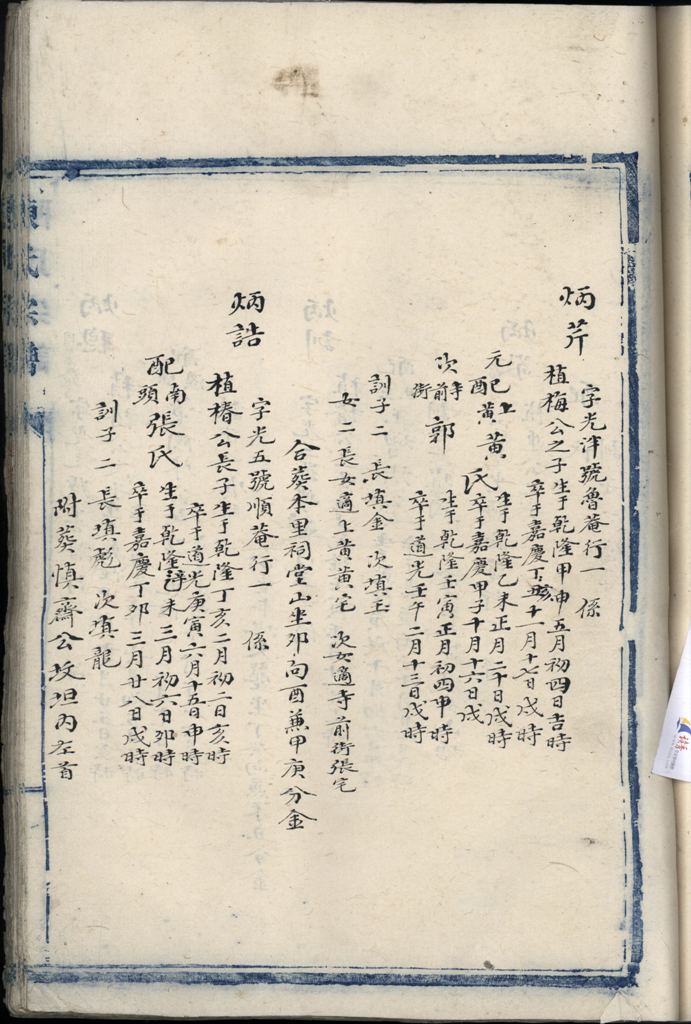 炳芹
字光泮號魯菴行一 係
植梅公之子生于乾隆甲申五月初四日吉時
卒于嘉慶丁亥十一月十七日戌時
元配上黃黃氏
生于乾隆乙未正月二十日戌時
卒于嘉慶甲子十月十六日戌
次寺前街郭
生于乾隆壬寅正月初四申時
卒于道光壬午二月十三日戌時
訓子二 長填金 次填玉
女二 長女適上黃黃宅 次女適寺前街張宅
合葬本里祠堂山坐卯向酉兼甲庚分金
炳誥
字光五號順菴行一 係
植椿公長子生于乾隆丁亥二月初二日亥時
卒于道光庚寅六月十五日申時
配南頭張氏
生于乾隆 未三月初六日卯時
卒于嘉慶丁卯三月廿八日戌時
訓子二 長填彪 次填龍
附葬慎齋公坟坦內左首
陳氏宗譜